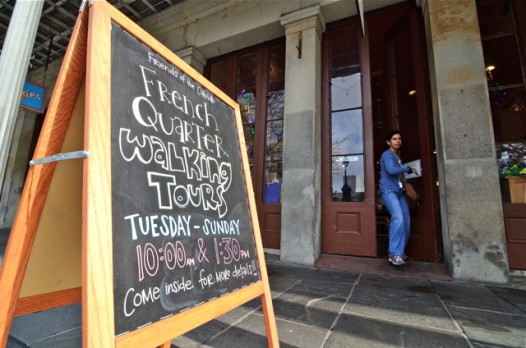 Friends of the Cabildo
French
Quarter
Walking
Tours
TUESDAY - SUNDAY
10:00AM & 1:30PM
Come inside for more details!!